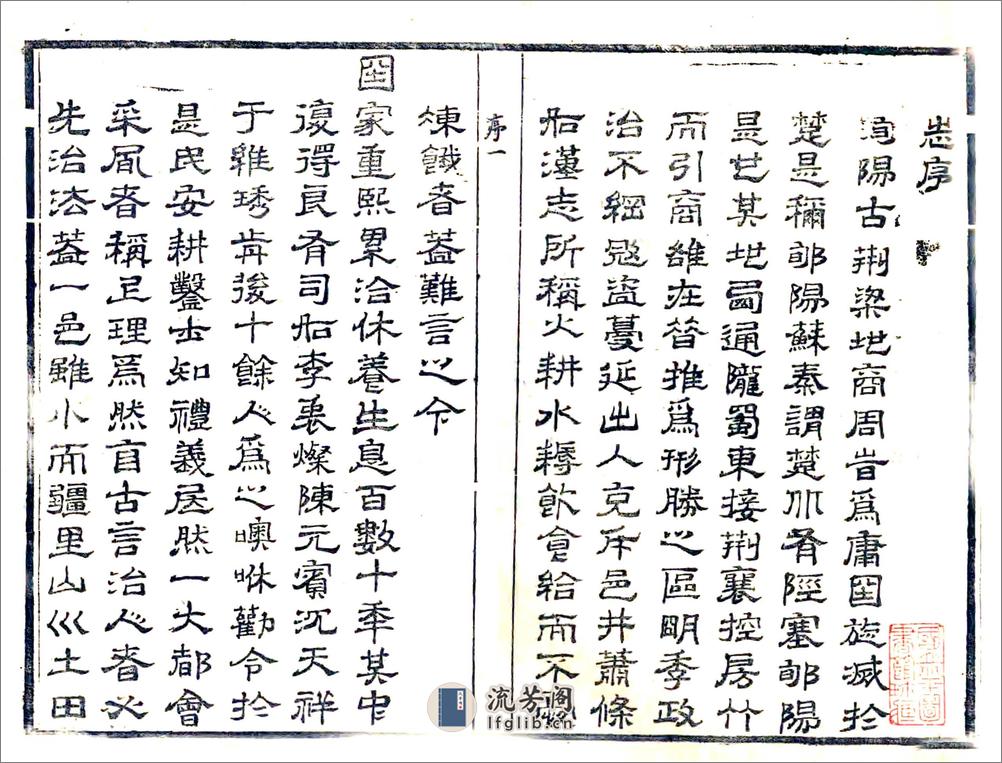 志序
洵陽古荆梁地商周旹爲庸國旋滅於
楚是稱郇陽蘇秦謂楚北有陘塞郇陽
是也其地西通隴蜀東接荆襄控房竹
而引商雒在昔推爲形勝之區明季政
治不綱寇盜蔓延出入充斥邑井蕭條
如漢志所稱火耕水耨飲食給而不
序一
凍餓者蓋難言之今
國家重熙累洽休養生息百數十年其中
復得良有司如李裘燦陳元賓沈天祥
于維琇前後十餘人爲之噢咻勸令於
是民安耕鑿士知禮義居然一大都會
采風者稱上理爲然自古言治人者必
先治法蓋一邑雖小而疆里山川土田
流芳阁
lfglib.cn